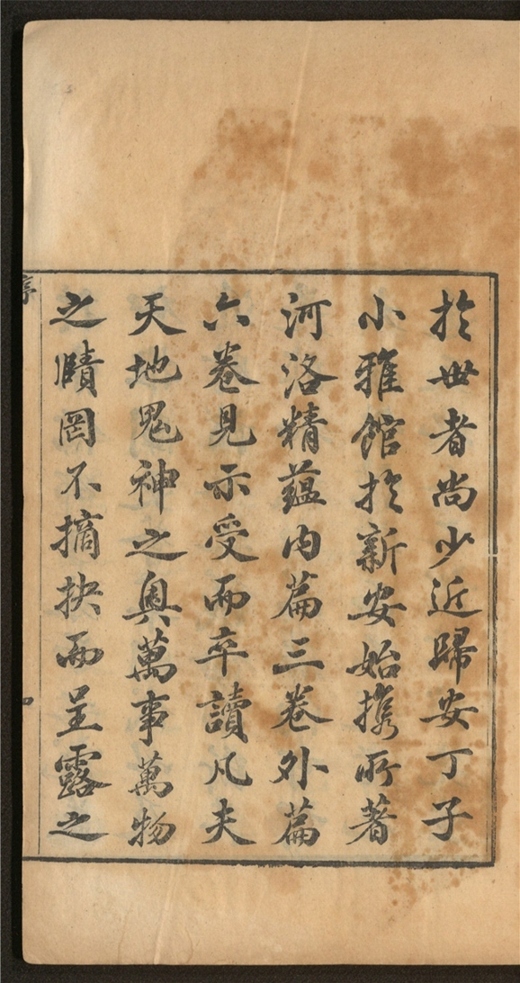 於世者尚少近歸安丁子
小雅館於新安始攜所著
河洛精蘊内篇三卷外篇
六卷見示受而卒讀凡夫
天地鬼神之奧萬事萬物
之賾罔不摘抉而呈露之
序
四